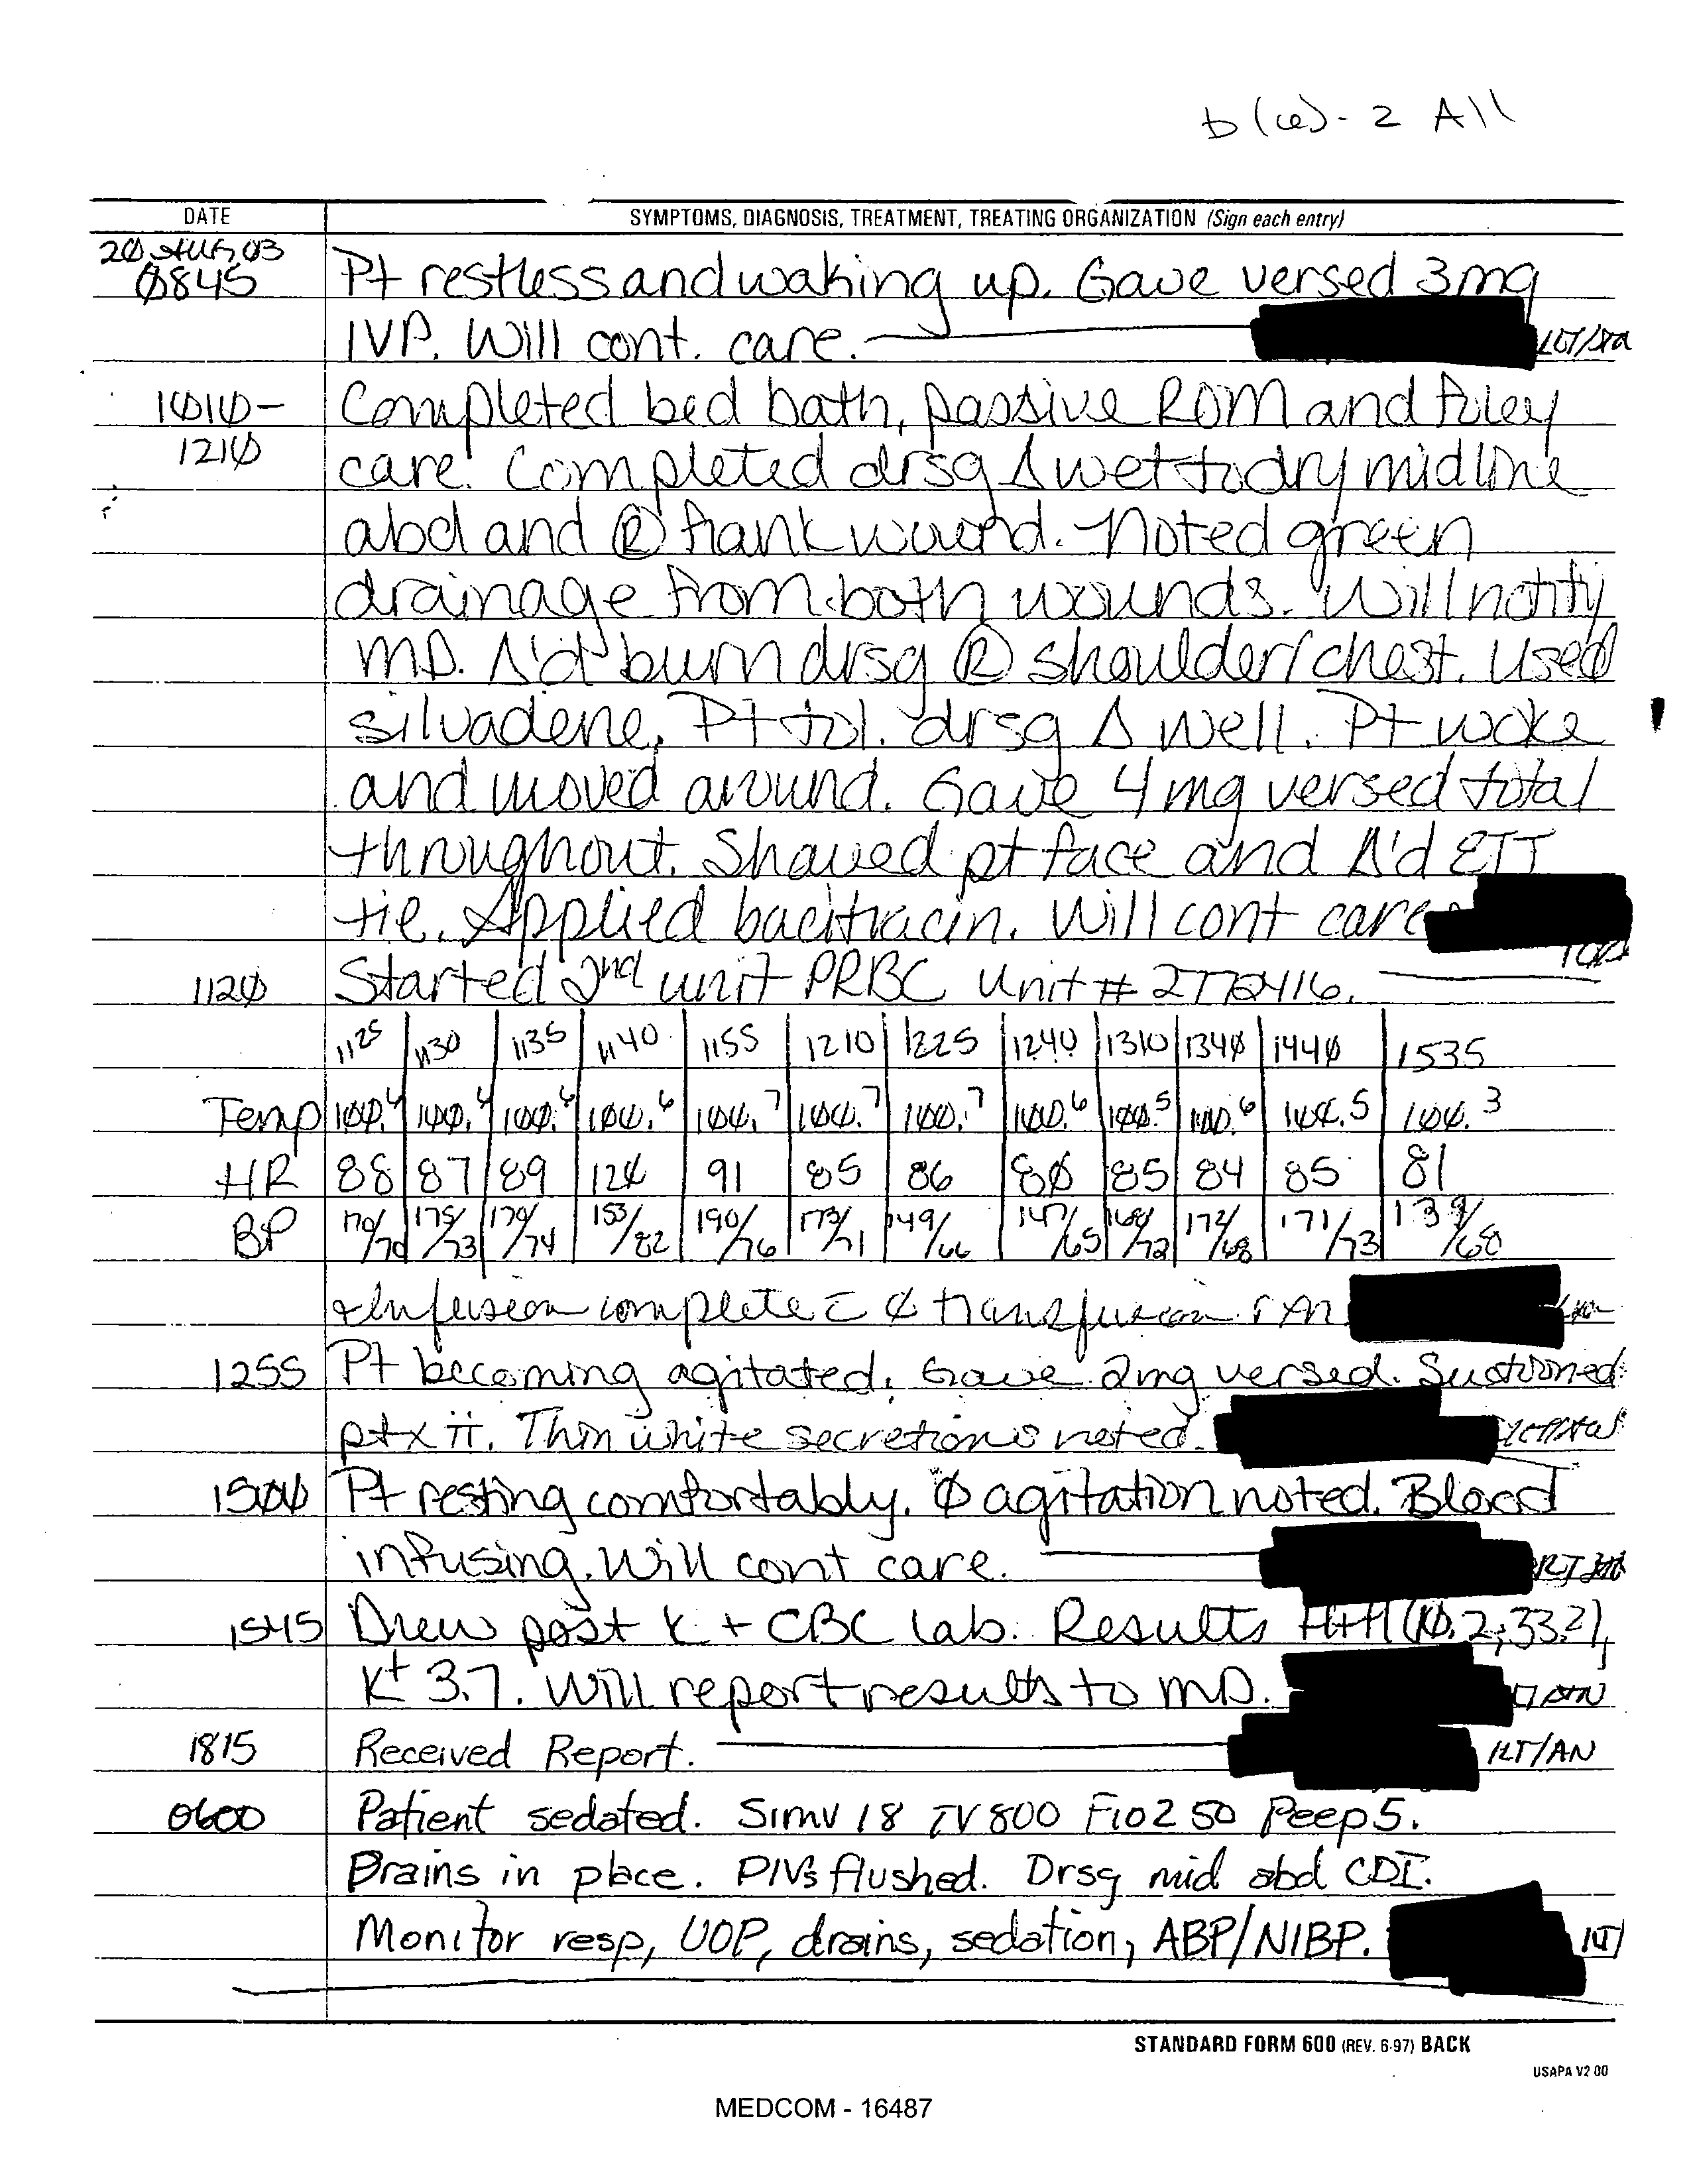 b(6)-2 All
DATE
SYMPTOMS, DIAGNOSIS, TREATMENT, TREATING ORGANIZATION (Sign each entry)
20 AUG 03
0845 Pt restless and waking up. Gave versed 3mg
IVP. Will cont. care.
1010- Completed bed bath, passive ROM and foley
1210 care. Completed drsg Δ wet to dry midline
abd and Ⓡ flank wound. Noted green
drainage from both wounds. Will notify
MD. Δ'd burn drsg Ⓡ shoulder/chest. Used
silvadene. Pt tol. drsg Δ well. Pt woke
and moved around. Gave 4mg versed total
throughout. Shaved pt face and Δ'd ETT
tie. Applied bacitracin. Will cont care
1120 Started 2nd unit PRBC Unit # 2772416.
1125 1130 1135 1140 1155 1210 1225 1240 1310 1340 1440 1535
Temp 100.4 100.4 100.6 100.6 100.7 100.7 100.7 100.6 100.5 100.6 100.5 100.3
HR 88 87 89 120 91 85 86 80 85 84 85 81
BP 170/70 175/73 179/74 153/82 190/76 173/71 149/66 147/65 168/72 172/68 171/73 139/68
Infusion complete c̄ ∅ transfusion rxn
1255 Pt becoming agitated. Gave 2mg versed. Suctioned
pt x ii. Thin white secretions noted.
1500 Pt resting comfortably. ∅ agitation noted. Blood
infusing. Will cont care.
1545 Drew post K + CBC lab. Results H+H (10.2, 33.2),
K+ 3.7. Will report results to MD.
1815 Received Report. 1LT/AN
0600 Patient sedated. SIMV 18 TV 800 FiO2 50 Peep 5.
Drains in place. PIVs flushed. Drsg mid abd CDI.
Monitor resp, UOP, drains, sedation, ABP/NIBP. 1LT/
STANDARD FORM 600 (REV. 6-97) BACK
USAPA V2.00
MEDCOM - 16487